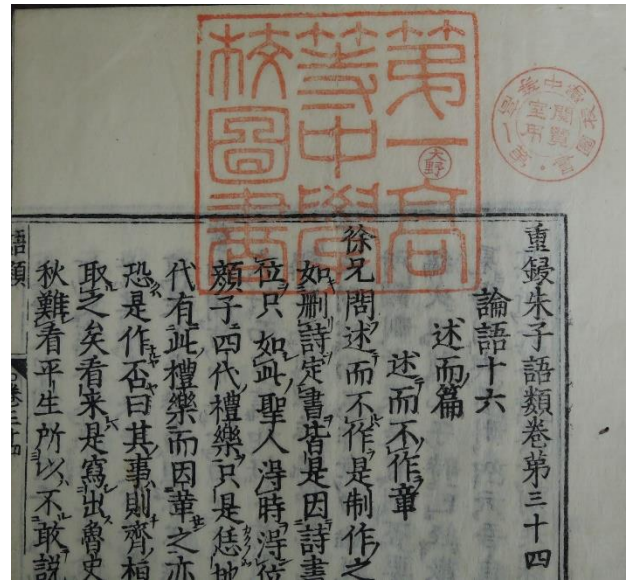 第一高
等中學
校圖書
大野
閱覽
室用
重鋟朱子語類卷第三十四
論語十六
述而篇
述而不作章
徐兄問述而不作是制作之
如刪詩定書皆是因詩書
位只如此聖人得時得位
顏子四代禮樂只是恁地
代有此禮樂而因革之亦
恐是作否曰其事則齊桓
取之矣看来是寫出魯史
秋難看平生所以不敢説
語類
卷三十四